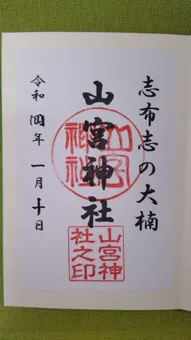 志布志の大楠
山宮神社
令和四年一月十日
山宮
神社
山宮神
社之印